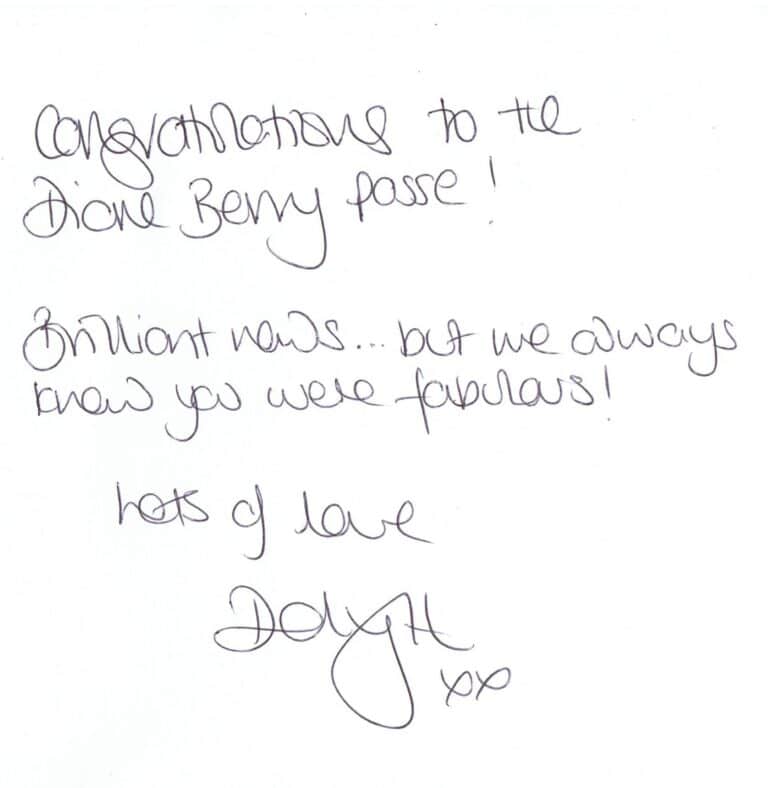 Congratulations to the
Diane Berry Posse!
Brilliant news... but we always
knew you were fabulous!
Lots of love
xx